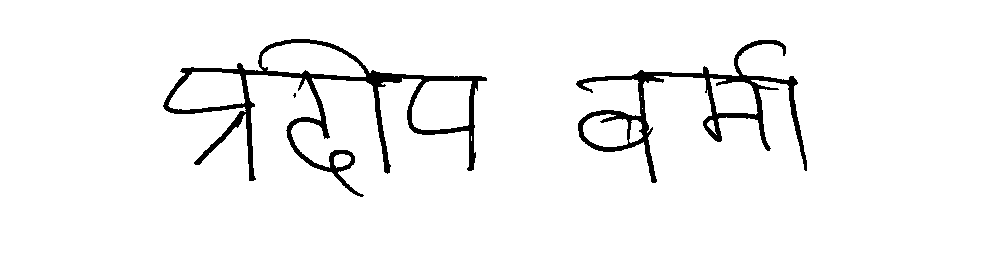 प्रदीप बर्मा